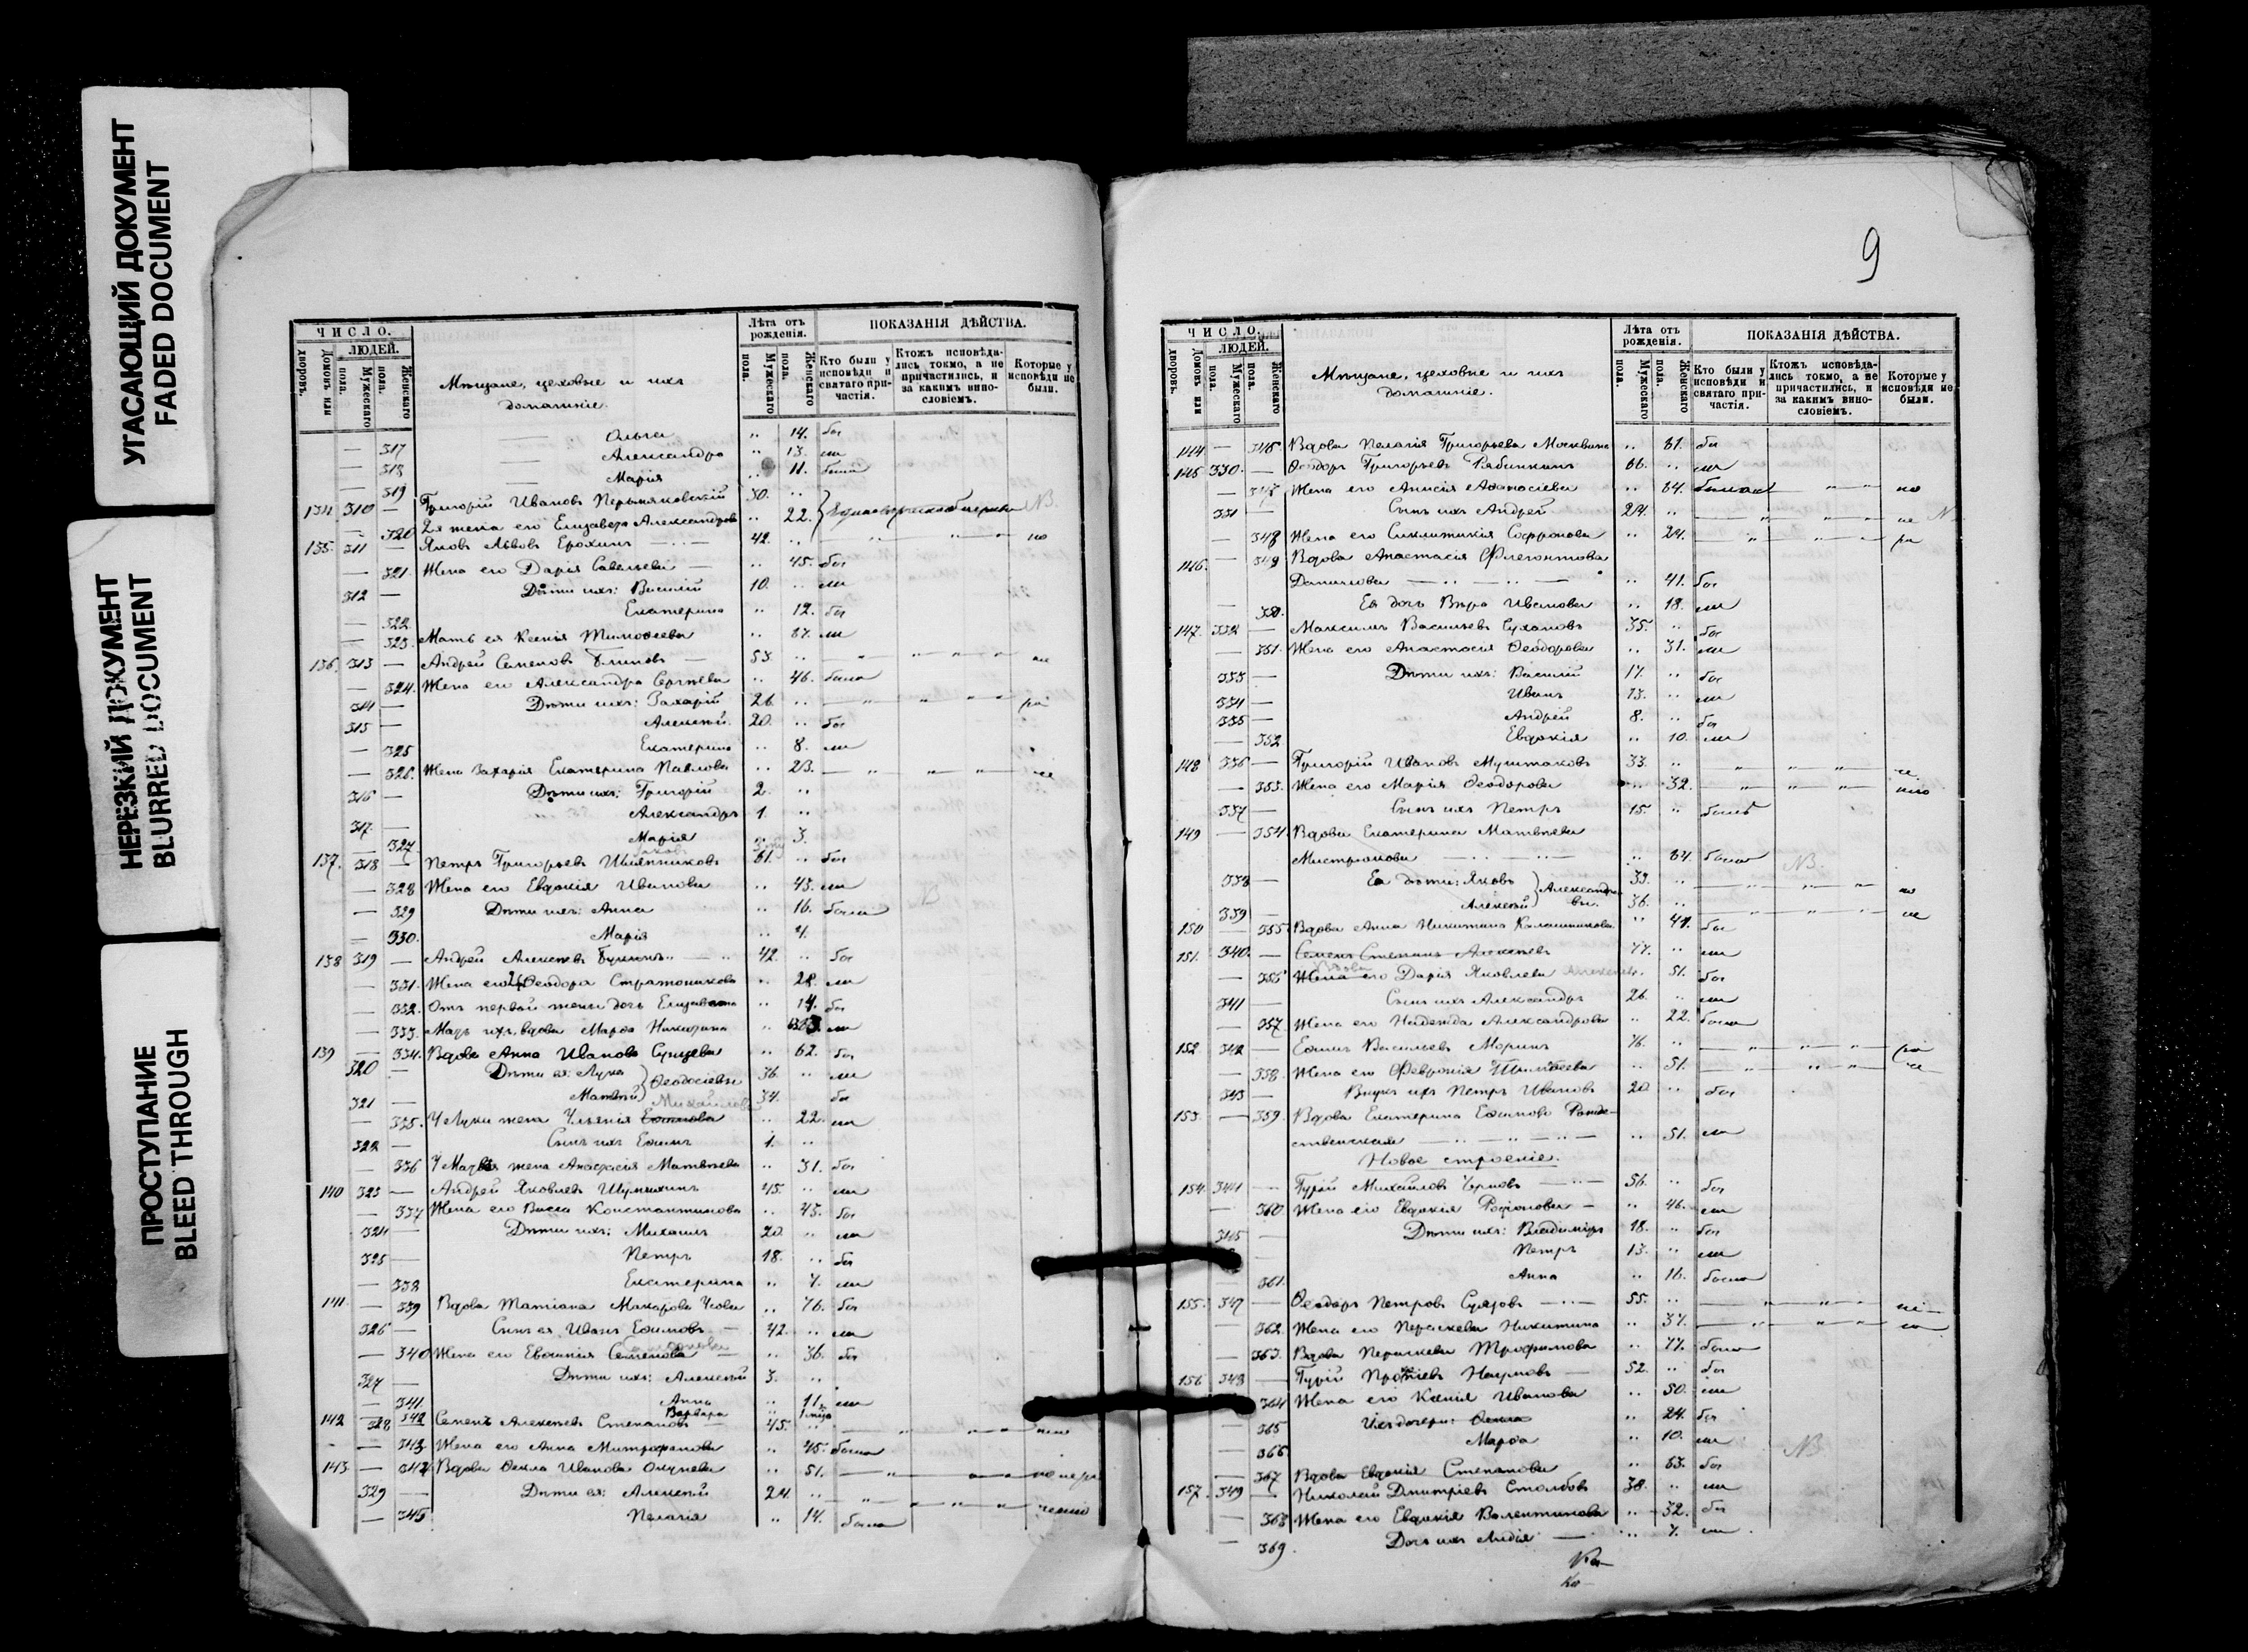 УГАСАЮЩИЙ ДОКУМЕНТ
FADED DOCUMENT
НЕРЕЗКИЙ ДОКУМЕНТ
BLURRED DOCUMENT
ПРОСТУПАНИЕ
BLEED THROUGH
ЧИСЛО.
ЛЮДЕЙ.
Домовъ или дворовъ.
Мужескаго пола.
Женскаго пола.
Мѣщане, цеховые и ихъ
домашніе.
Лѣта отъ рожденія.
Мужескаго пола.
Женскаго пола.
ПОКАЗАНІЯ ДѢЙСТВА.
Кто были у исповѣди и святаго причастія.
Ктожъ исповѣдались токмо, а не причастились, и за какимъ винословіемъ.
Которые у исповѣди не были.
— 317 Ольга " 14. бы
— 318 Александра " 13. ли
— 319 Марія " 11. была
134. 310 — Григорій Ивановъ 30. "
— 320 2я жена его Елизавета Александрова " 22. NB.
135. 311 — Яковъ Львовъ Ерохинъ 42. "
— 321. Жена его Дарія Савельева — " 45. бы
312 — Дѣти ихъ: Василій 10. " ли
— 322. Екатерина " 12. бы
— 323. Мать ея Ксенія Тимоѳеева " 87. ли
136. 313 — Андрей Семеновъ Блиновъ — 53. "
— 324. Жена его Александра Сергѣева " 46. была
314 — Дѣти ихъ: Захарій 26. "
315 — Алексѣй. 20. " бы
— 325 Екатерина " 8. ли
— 326. Жена Захарія Екатерина Павлова " 23.
316 — Дѣти ихъ: Григорій 2. "
317. — Александръ 1. "
— 327 Марія " 3.
137. 318 — Петръ Григорьевъ 61. " бы
— 328 Жена его Евдокія Иванова " 43. ли
— 329 Дѣти ихъ: Анна " 16. были
— 330. Марія " 4.
138 319 — Андрей Алексѣевъ 42. " бы
— 331. Жена его 2я Ѳеодора Стратоникова " 28. ли
— 332. Отъ первой жены дочь Елизавета " 14. бы
— 333. Мать ихъ, вдова Марѳа Никитина " ли
139 — 334. Вдова Анна Иванова " 62. бы
320 — Дѣти ея: Лука } Ѳеодосіевы 36. " ли
321 — Матвѣй 34. " бы
— 335. У Луки жена Уліянія Михайлова " 22. ли
322 — Сынъ ихъ Ефимъ 1. "
— 336 У Матвѣя жена Анастасія Матвѣева " 31. бы
140 323 — Андрей Яковлевъ Шумихинъ 45. " ли
— 337 Жена его Васса Константинова " 43. бы
324 — Дѣти ихъ: Михаилъ 20. " ли
325 — Петръ 18. " бы
— 338 Екатерина " 7. ли
141. — 339 Вдова Татіана Макарова " 76. бы
326 — Сынъ ея Иванъ Ефимовъ — 42. " ли
— 340 Жена его Евфимія " 36. бы
327 — Дѣти ихъ: Алексѣй 3. "
— 341. Анна " 11. ли
342 Варвара
142 328 Семенъ Алексѣевъ Степановъ 45. "
— 343 Жена его Анна Митрофанова " 45. была
143 — 344 Вдова Ѳекла Иванова " 51.
329 — Дѣти ея: Алексѣй 24. "
— 345 Пелагія " 14. была
9
ЧИСЛО.
ЛЮДЕЙ.
Домовъ или дворовъ.
Мужескаго пола.
Женскаго пола.
Мѣщане, цеховые и ихъ
домашніе.
Лѣта отъ рожденія.
Мужескаго пола.
Женскаго пола.
ПОКАЗАНІЯ ДѢЙСТВА.
Кто были у исповѣди и святаго причастія.
Ктожъ исповѣдались токмо, а не причастились, и за какимъ винословіемъ.
Которые у исповѣди не были.
144. — 346. Вдова Пелагія Григорьева Москвина " 81. бы
145 330. — Ѳеодоръ Григорьевъ Рябинкинъ 66. " ли
— 347 Жена его Анисія Аѳанасіева " 64.
331 — Сынъ ихъ Андрей 24. "
— 348 Жена его Синклитикія Софронова " 24.
146. — 349 Вдова Анастасія Флегонтова
Данилова " 41. бы
— 350. Ея дочь Вѣра Иванова " 18. ли
147. 332 — Максимъ Васильевъ Сухановъ 35. " бы
— 351. Жена его Анастасія Ѳеодорова " 31. ли
333 — Дѣти ихъ: Василій 17. " бы
334 — Иванъ 13. " ли
335 — Андрей 8. " бы
— 352 Евдокія " 10. ли
148 336 — Григорій Ивановъ Муштаковъ 33. "
— 353. Жена его Марія Ѳеодорова " 32.
337 — Сынъ ихъ Петръ 15. " былъ
149 — 354. Вдова Екатерина Матвѣева
Мистрюкова " 64. была NB.
338 — Ея дѣти: Яковъ } Александро- 39. "
339 — Алексѣй вы. 36. "
150 — 355 Вдова Анна Никитина Калашникова " 47. бы
151. 340. — Семенъ Степановъ Алексѣевъ 77. " ли
— 356 Вдова Дарія Яковлева " 51. бы
341 — Сынъ ихъ Александръ 26. " ли
— 357 Жена его Надежда Александрова " 22. была
152 342 — Ефимъ Васильевъ Моринъ 76. "
— 358. Жена его Февронія Тимоѳеева " 51.
343 — Внукъ ихъ Петръ Ивановъ 20 " бы
153. — 359. Вдова Екатерина Ефимова Рожде-
ственская " 51. ли
Новое строеніе.
154. 344 — Гурій Михайловъ Черновъ 56. " бы
— 360. Жена его Евдокія Родіонова — " 46. ли
345 — Дѣти ихъ: Владиміръ 18. " бы
Петръ 13. " ли
— 361. Анна " 16. была
155. 347 — Ѳеодоръ Петровъ 55. "
— 362. Жена его Параскева Никитина " 37.
— 363. Вдова Параскева Трофимова " 77. была
156 348 — Гурій Наумовъ — 52. " бы
— 364 Жена его Ксенія Иванова " 50. ли
— 365 Ихъ дочери: Ѳекла " 24. бы
— 366 Марѳа " 10. ли
— 367 Вдова Евдокія Степанова " 63. бы NB
157. 349 — Николай Дмитріевъ Столбовъ 38. " ли
— 368 Жена его Евдокія Валентинова " 32. бы
— 369. Дочь ихъ Лидія — " 7. ли